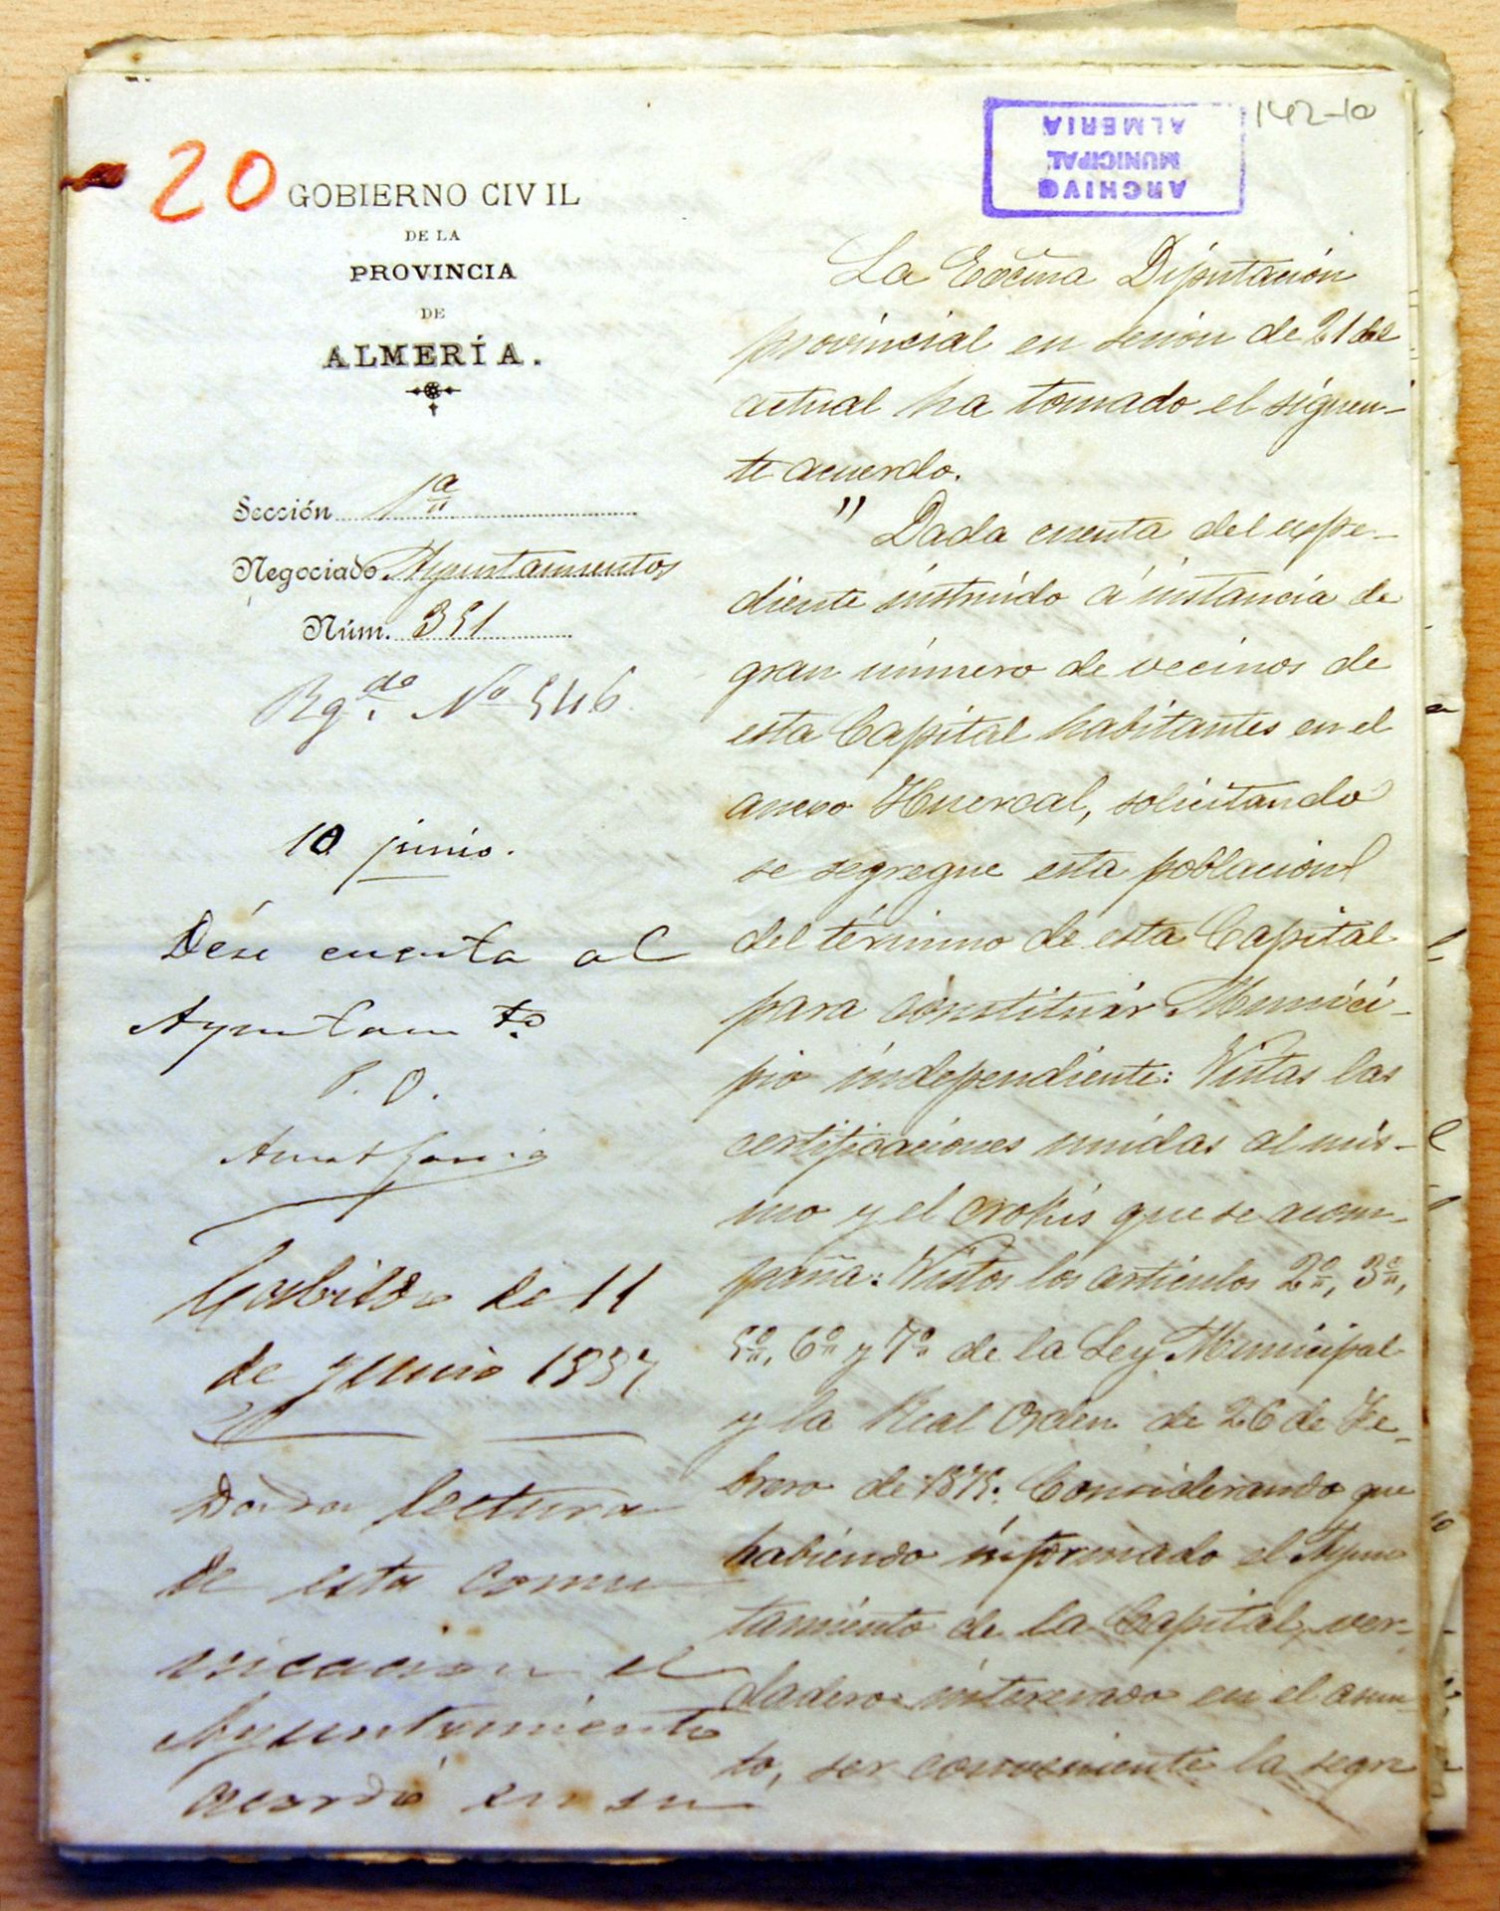 20
GOBIERNO CIVIL
DE LA
PROVINCIA
DE
ALMERÍA.
Sección 1ª
Negociado Ayuntamientos
Núm. 351
Rgdo. Nº 546
10 junio.
Dése cuenta al
Ayuntamto
P. O.
Cabildo de 11
de junio 1887
Dada lectura
de esta comu
nicacion el
Ayuntamiento
acordó en su
142-10
ARCHIVO
MUNICIPAL
ALMERIA
La Excma Diputación
provincial en sesion de 21 del
actual ha tomado el siguien-
te acuerdo.
" Dada cuenta del espe-
diente instruido á instancia de
gran número de vecinos de
esta Capital habitantes en el
anexo Huercal, solicitando
se segregue esta poblacion
del término de esta Capital
para constituir Munici-
pio independiente: Vistas las
certificaciones unidas al mis-
mo y el crokis que se acom-
paña: Vistos los artículos 2º, 3º,
5º, 6º y 7º de la Ley Municipal
y la Real Orden de 26 de Fe-
brero de 1875: Considerando que
habiendo informado el Ayun
tamiento de la Capital, ver-
dadero interesado en el asun-
to, ser conveniente la segre